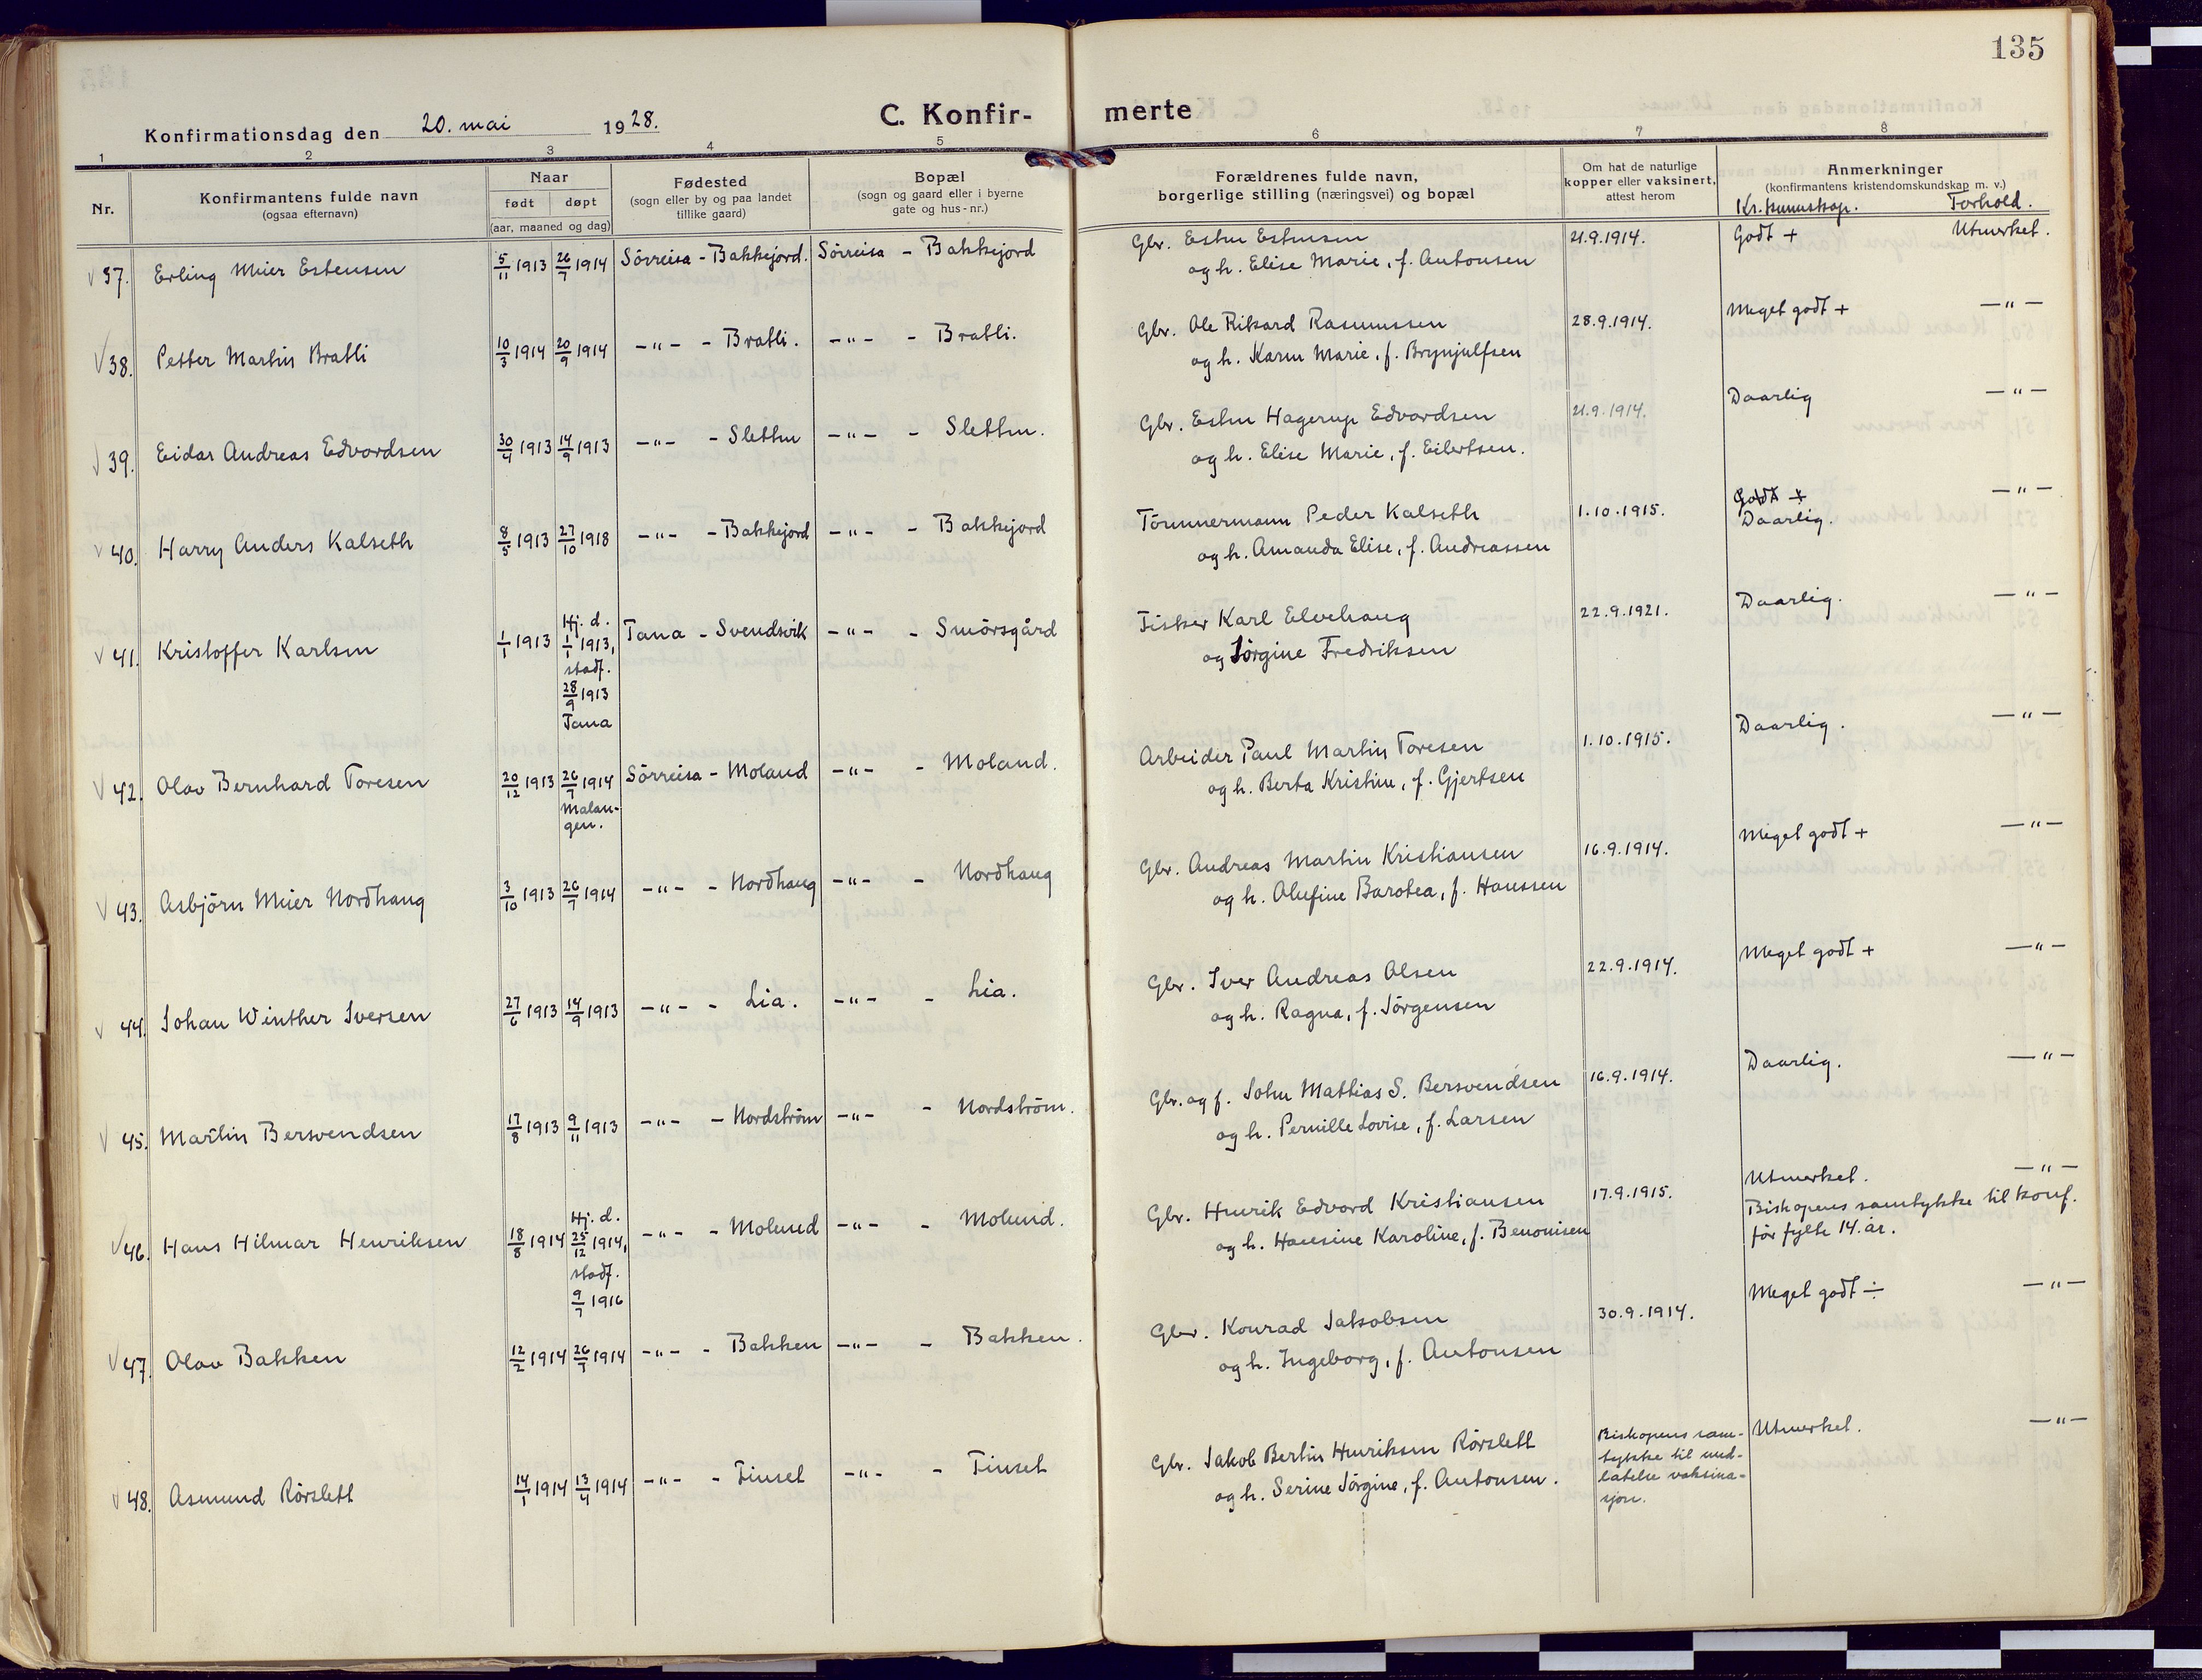 135
Konfirmationsdag den 20. mai 1928.
C. Konfirmerte
1 2 3 4 5 6 7 8
Nr.
Konfirmantens fulde navn
(ogsaa efternavn)
Naar
født døpt
(aar, maaned og dag)
Fødested
(sogn eller by og paa landet
tillike gaard)
Bopæl
(sogn og gaard eller i byerne
gate og hus-nr.)
Forældrenes fulde navn,
borgerlige stilling (næringsvei) og bopæl
Om hat de naturlige
kopper eller vaksinert,
attest herom
Anmerkninger
(konfirmantens kristendomskundskap m. v.)
Kr.kunnskap. Forhold.
37. Erling Meier Estensen 5/11 1913 26/7 1914 Sörreisa - Bakkejord. Sörreisa - Bakkejord Gbr. Esten Estensen 21.9.1914. Godt + Utmerket.
og h. Elise Marie, f. Antonsen
38. Petter Martin Bratli 10/3 1914 20/9 1914 -"- - Bratli. -"- - Bratli. Gbr. Ole Rikard Rasmussen 28.9.1914. Meget godt + -"-
og h. Karen Marie, f. Brynjulfsen
39. Eidar Andreas Edvardsen 30/4 1913 14/9 1913 -"- - Sletten -"- - Sletten. Gbr. Esten Hagerup Edvardsen 21.9.1914. Daarlig -"-
og h. Elise Marie, f. Eilertsen.
40. Harry Anders Kalseth 8/5 1913 27/10 1918 -"- - Bakkejord -"- - Bakkejord Tömmermann Peder Kalseth 1.10.1915. Godt + -"-
Daarlig.
og h. Amanda Elise, f. Andreassen
41. Kristoffer Karlsen 1/1 1913 Hj. d. 1/1 1913, stadf. 28/9 1913 Tana Tana - Svendsvik -"- - Smörsgård Fisker Karl Elvehaug 22.9.1921. Daarlig. -"-
og Jörgine Fredriksen
42. Olav Bernhard Toresen 20/12 1913 26/7 1914 Malangen. Sörreisa - Moland -"- - Moland. Arbeider Paul Martin Toresen 1.10.1915. Daarlig. -"-
og h. Berta Kristine, f. Gjertsen
43. Asbjörn Meier Nordhaug 3/10 1913 26/7 1914 -"- - Nordhaug -"- - Nordhaug Gbr. Andreas Martin Kristiansen 16.9.1914. Meget godt + -"-
og h. Olufine Barotea, f. Hanssen
44. Johan Winther Iversen 27/6 1913 14/9 1913 -"- - Lia. -"- - Lia. Gbr. Iver Andreas Olsen 22.9.1914. Meget godt + -"-
og h. Ragna, f. Jörgensen
45. Martin Bersvendsen 17/8 1913 9/11 1913 -"- - Nordström -"- - Nordström. Gbr. og f. John Mathias S. Bersvendsen 16.9.1914. Daarlig. -"-
og h. Pernille Lovise, f. Larsen
46. Hans Hilmar Henriksen 18/8 1914 Hj. d. 25/12 1914, stadf. 9/7 1916 -"- - Molund -"- - Molund. Gbr. Henrik Edvard Kristiansen 17.9.1915. Utmerket. -"-
og h. Hansine Karoline, f. Benonisen
Biskopens samtykke til konf.
før fylte 14. år.
47. Olav Bakken 12/2 1914 26/7 1914 -"- - Bakken -"- - Bakken. Gbr. Konrad Jakobsen 30.9.1914. Meget godt ÷ -"-
og h. Ingeborg, f. Antonsen
48. Asmund Rörslett 14/1 1914 13/4 1914 -"- - Finset -"- - Finset Gbr. Jakob Bertin Henriksen Rörslett Utmerket. -"-
og h. Serine Jörgine, f. Antonsen.
Biskopens sam-
tykke til und-
latelse vaksina-
sjon.